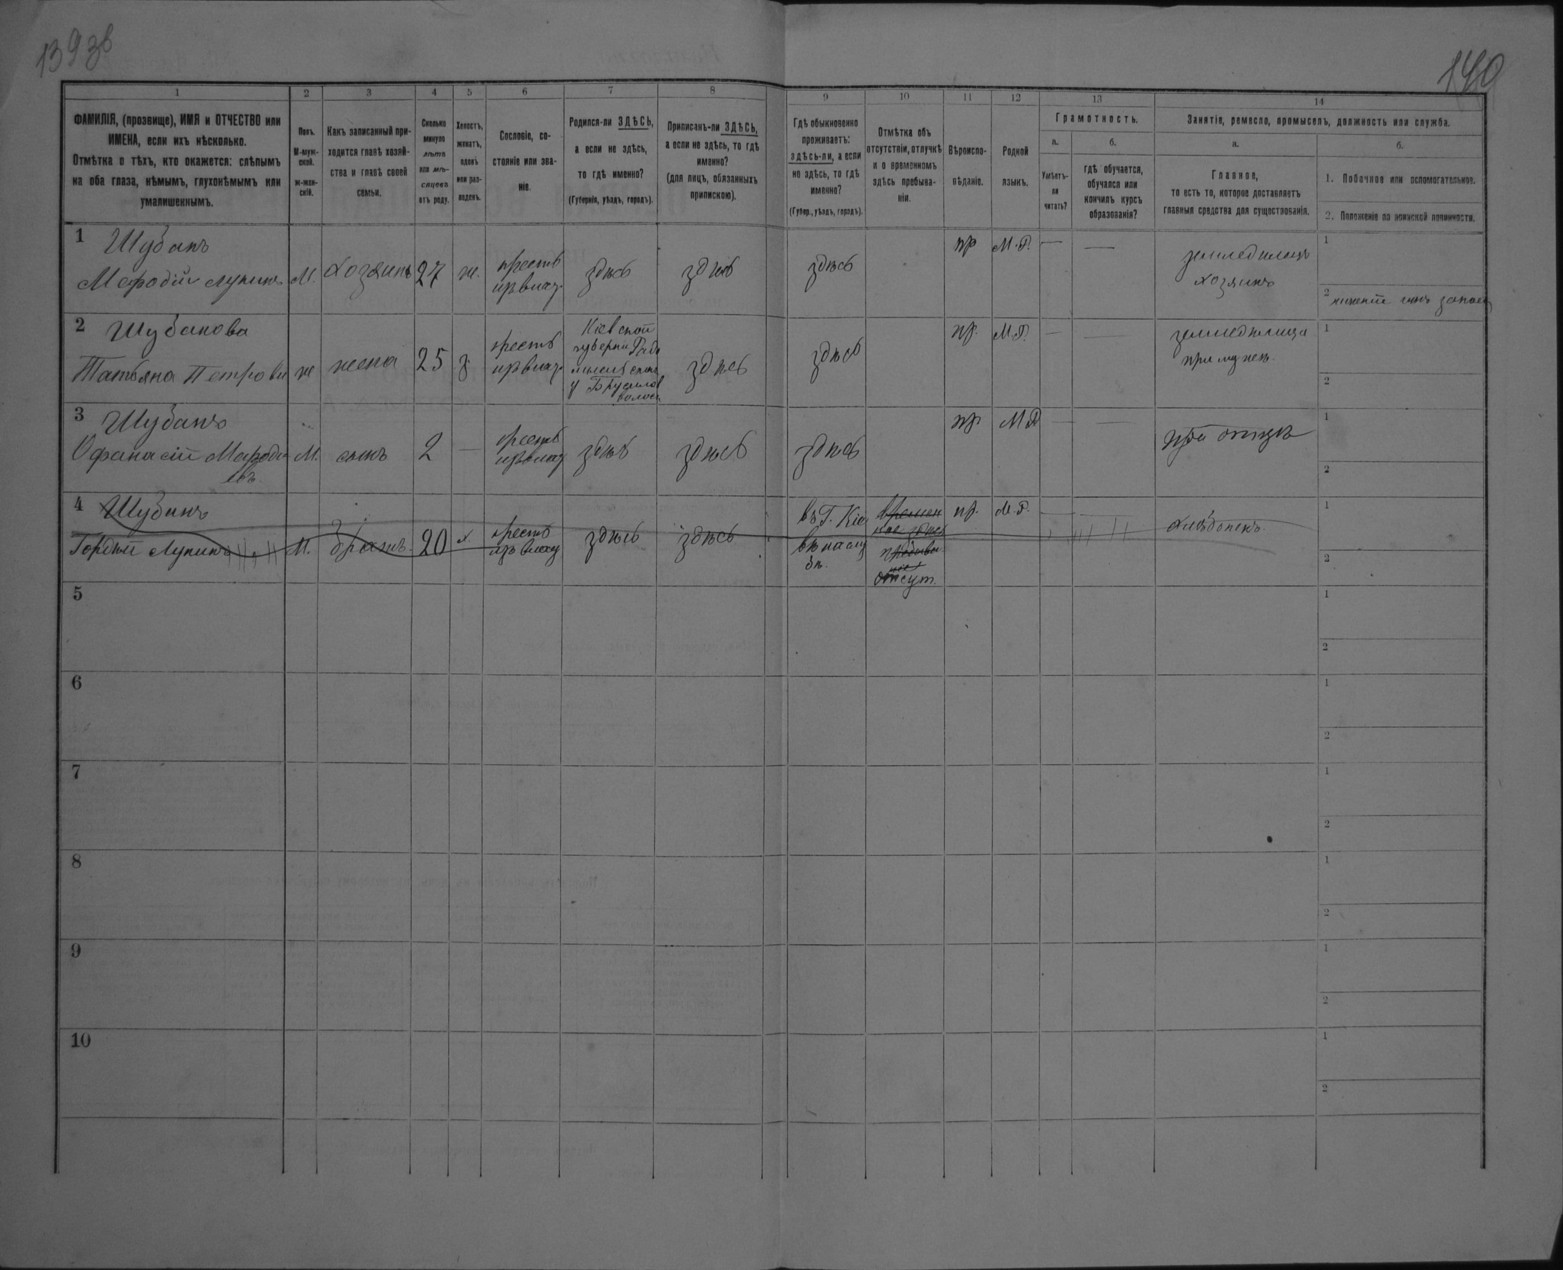 139 зв
140
1
2
3
4
5
6
7
8
9
10
11
12
13
14
ФАМИЛІЯ, (прозвище), ИМЯ и ОТЧЕСТВО или
ИМЕНА, если ихъ нѣсколько.
Отмѣтка о тѣхъ, кто окажется: слѣпымъ
на оба глаза, нѣмымъ, глухонѣмымъ или
умалишеннымъ.
Полъ.
М-муж-
ской.
ж-жен-
скій.
Какъ записанный при-
ходится главѣ хозяй-
ства и главѣ своей
семьи.
Сколько
минуло
лѣтъ
или мѣ-
сяцевъ
отъ роду.
Холостъ,
женатъ,
вдовъ
или раз-
веденъ.
Сословіе, со-
стояніе или зва-
ніе.
Родился-ли ЗДѢСЬ,
а если не здѣсь,
то гдѣ именно?
(Губернія, уѣздъ, городъ).
Приписанъ-ли ЗДѢСЬ,
а если не здѣсь, то гдѣ
именно?
(для лицъ, обязанныхъ
припискою).
Гдѣ обыкновенно
проживаетъ:
здѣсь-ли, а если
не здѣсь, то гдѣ
именно?
(Губер., уѣздъ, городъ).
Отмѣтка объ
отсутствіи, отлучкѣ
и о временномъ
здѣсь пребыва-
ніи.
Вѣроиспо-
вѣданіе.
Родной
языкъ.
Грамотность.
а.
Умѣетъ-
ли
читать?
б.
гдѣ обучается,
обучался или
кончилъ курсъ
образованія?
Занятіе, ремесло, промыселъ, должность или служба.
а.
Главное,
то есть то, которое доставляетъ
главныя средства для существованія.
б.
1. Побочное или вспомогательное.
2. Положеніе по воинской повинности.
1
Шубанъ
Мефодій Лукинъ
М.
хозяинъ
27
ж.
крестъ
изъ влад.
здѣсь
здѣсь
здѣсь
пр
М.Р.
—
—
земледѣлецъ
хозяинъ
1
2
2
Шубанова
Татьяна Петрова
ж
жена
25
з
крестъ
изъ влад.
Кіевской
губерніи
здѣсь
здѣсь
пр.
М.Р.
—
—
земледѣлица
при мужѣ
1
2
3
Шубанъ
Офанасій
М.
сынъ
2
—
крестъ
изъ влад
здѣсь
здѣсь
здѣсь
пр
М Р
—
—
при отцѣ
1
2
4
Шубанъ
Лукинъ
М.
братъ
20
х.
крестъ
изъ влад
здѣсь
здѣсь
въ Г. Кіе
вѣ на слу
бѣ.
времен
ное здѣсь
отсут.
пр.
М.Р.
—
хлѣбопекъ
1
2
5
1
2
6
1
2
7
1
2
8
1
2
9
1
2
10
1
2